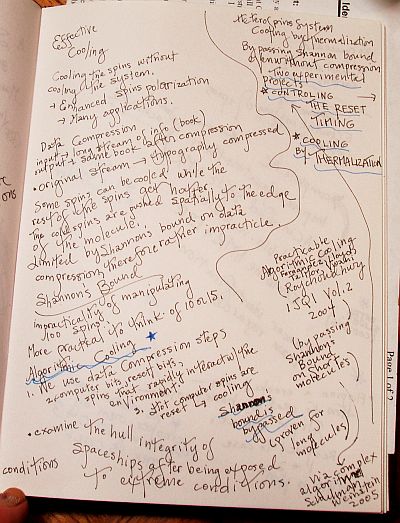 Effective
Cooling
Cooling the spins without
cooling the system.
→ Enhanced spins polarization
→ Many applications.
Data Compression
input → long stream of info (book)
output → same book after compression
• original stream → typography compressed
Some spins can be cooled while the
rest of the spins get hotter.
The cold spins are pushed spatially to the edge
of the molecule.
Limited by Shannon's bound on data
compression, therefore rather impractical.
Shannon's Bound
impracticality of manipulating
100 spins.
More practical to think of 10 or 15.
Algorithmic Cooling
1. We use data compression steps
2. computer bits, reset bits,
spins that rapidly interact w/ the
environment.
3. Hot computer spins are
reset → cooling
Shannon's
bound is
bypassed
(proven for
long
molecules)
• examine the hull integrity of
spaceships after being exposed
to extreme conditions.
Heterospins System
Cooling by thermalization
Bypassing Shannon bound
w/out compression
- Two experimental
projects
CONTROLING
THE RESET
TIMING
COOLING
BY THERMALIZATION
Practicable
Algorithmic Cooling
Fernandez, Lloyd,
Mor, &
Roychoudhury
IJQI Vol. 2
2004
(bypassing
Shannon's
Bound
on short
molecules)
Via complex
algorithm
Schulman
Weinstein
2005
conditions
ons
Page 1 of 2